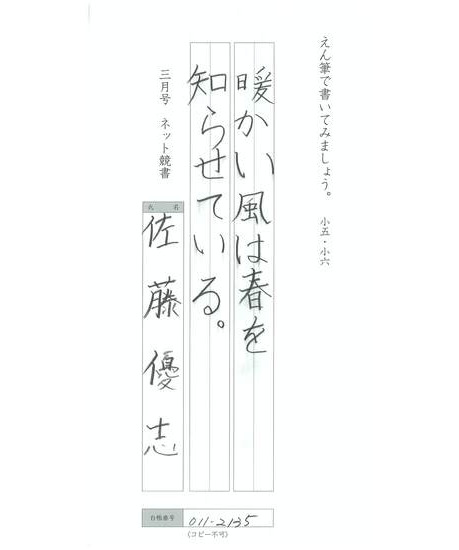 えん筆で書いてみましょう。 小五・小六
暖かい風は春を
知らせている。
三月号 ネット競書
氏名
佐藤優志
台帳番号 011-2135
(コピー不可)